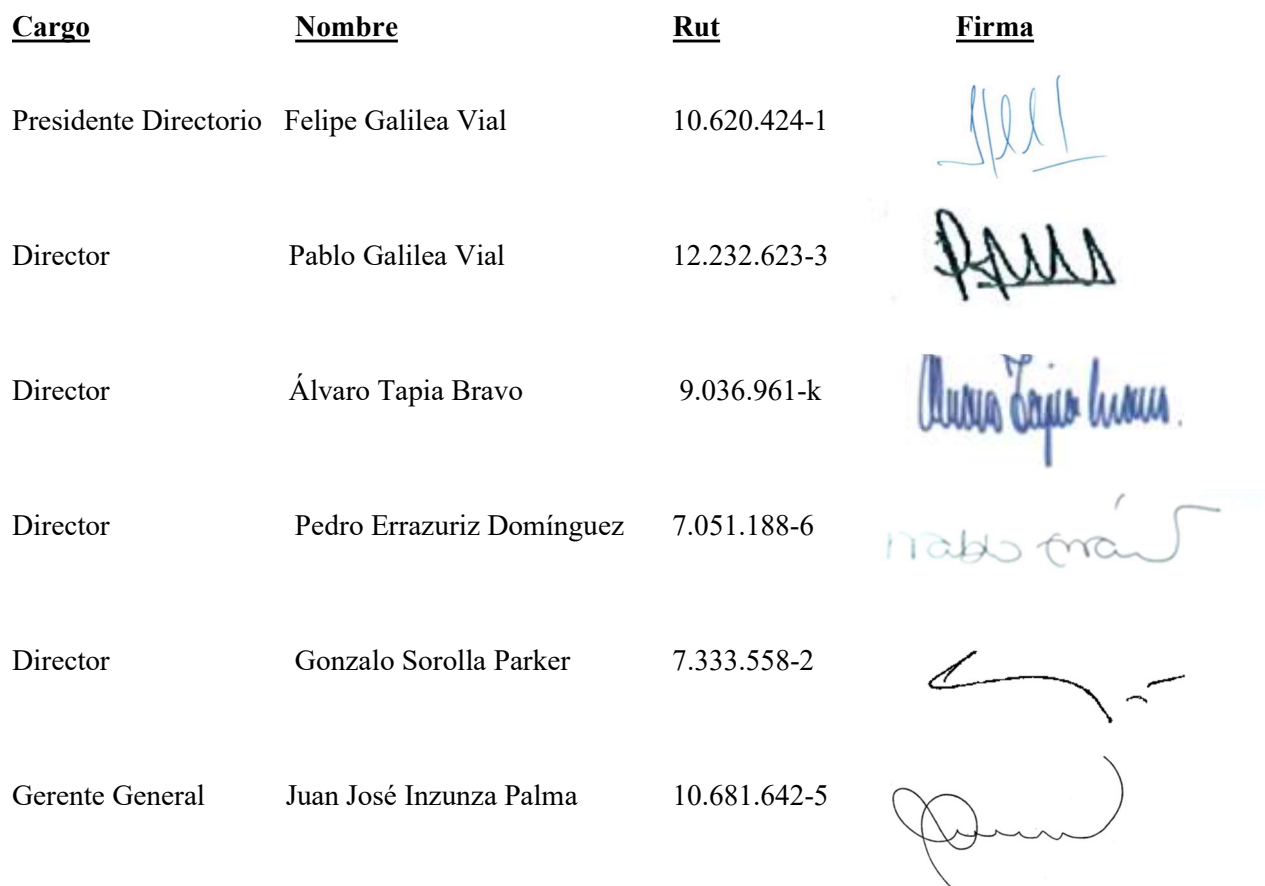 Cargo Nombre Rut Firma
Presidente Directorio Felipe Galilea Vial 10.620.424-1
Director Pablo Galilea Vial 12.232.623-3
Director Álvaro Tapia Bravo 9.036.961-k
Director Pedro Errazuriz Domínguez 7.051.188-6
Director Gonzalo Sorolla Parker 7.333.558-2
Gerente General Juan José Inzunza Palma 10.681.642-5